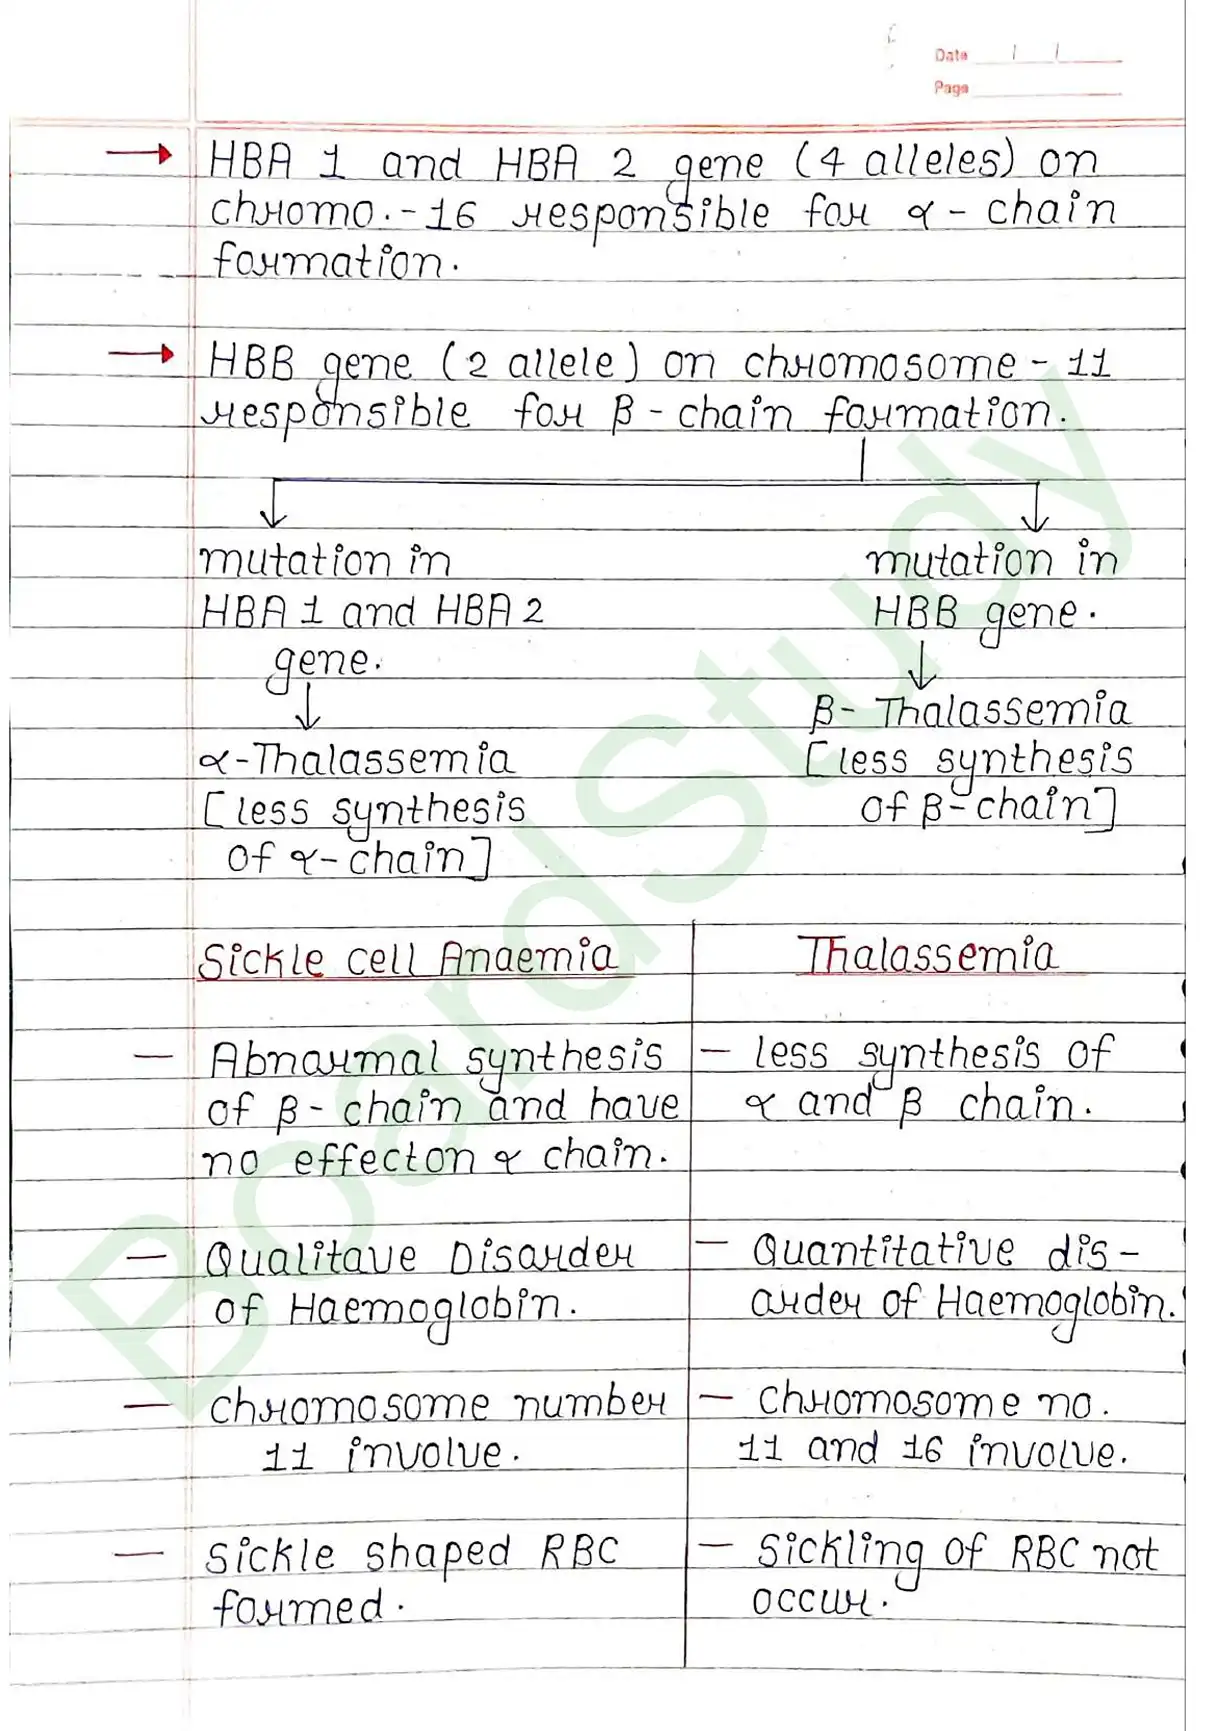 Date / /
Page
HBA 1 and HBA 2 gene (4 alleles) on
chromo.-16 responsible for α - chain
formation.
HBB gene (2 allele) on chromosome - 11
responsible for β - chain formation.
mutation in
HBA 1 and HBA 2
gene.
α-Thalassemia
[less synthesis
of α-chain]
mutation in
HBB gene.
β- Thalassemia
[less synthesis
of β-chain]
Sickle cell Anaemia
— Abnormal synthesis
of β- chain and have
no effecton α chain.
— Qualitave Disorder
of Haemoglobin.
— chromosome number
11 involve.
— Sickle shaped RBC
formed.
Thalassemia
— less synthesis of
α and β chain.
— Quantitative dis-
order of Haemoglobin.
— Chromosome no.
11 and 16 involve.
— Sickling of RBC not
occur.
BoardStudy